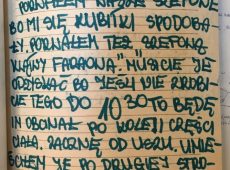 PORWAŁEM WASZE ZŁEPONE
BO MI SIĘ KUBIKI SPODOBA-
ŁY. PORWAŁEM TEŻ
FARAONA. MUSICIE JE
ODZYSKAĆ BO JEŚLI NIE ZROBI-
CIE TEGO DO 10 30 TO BĘDĘ
IM OBCINAŁ PO KOLEJI CZĘŚCI
CIAŁA, ZACZNĘ OD USZU. UMIE-
ŚCIŁEM JE PO DRUGIEJ STRO-